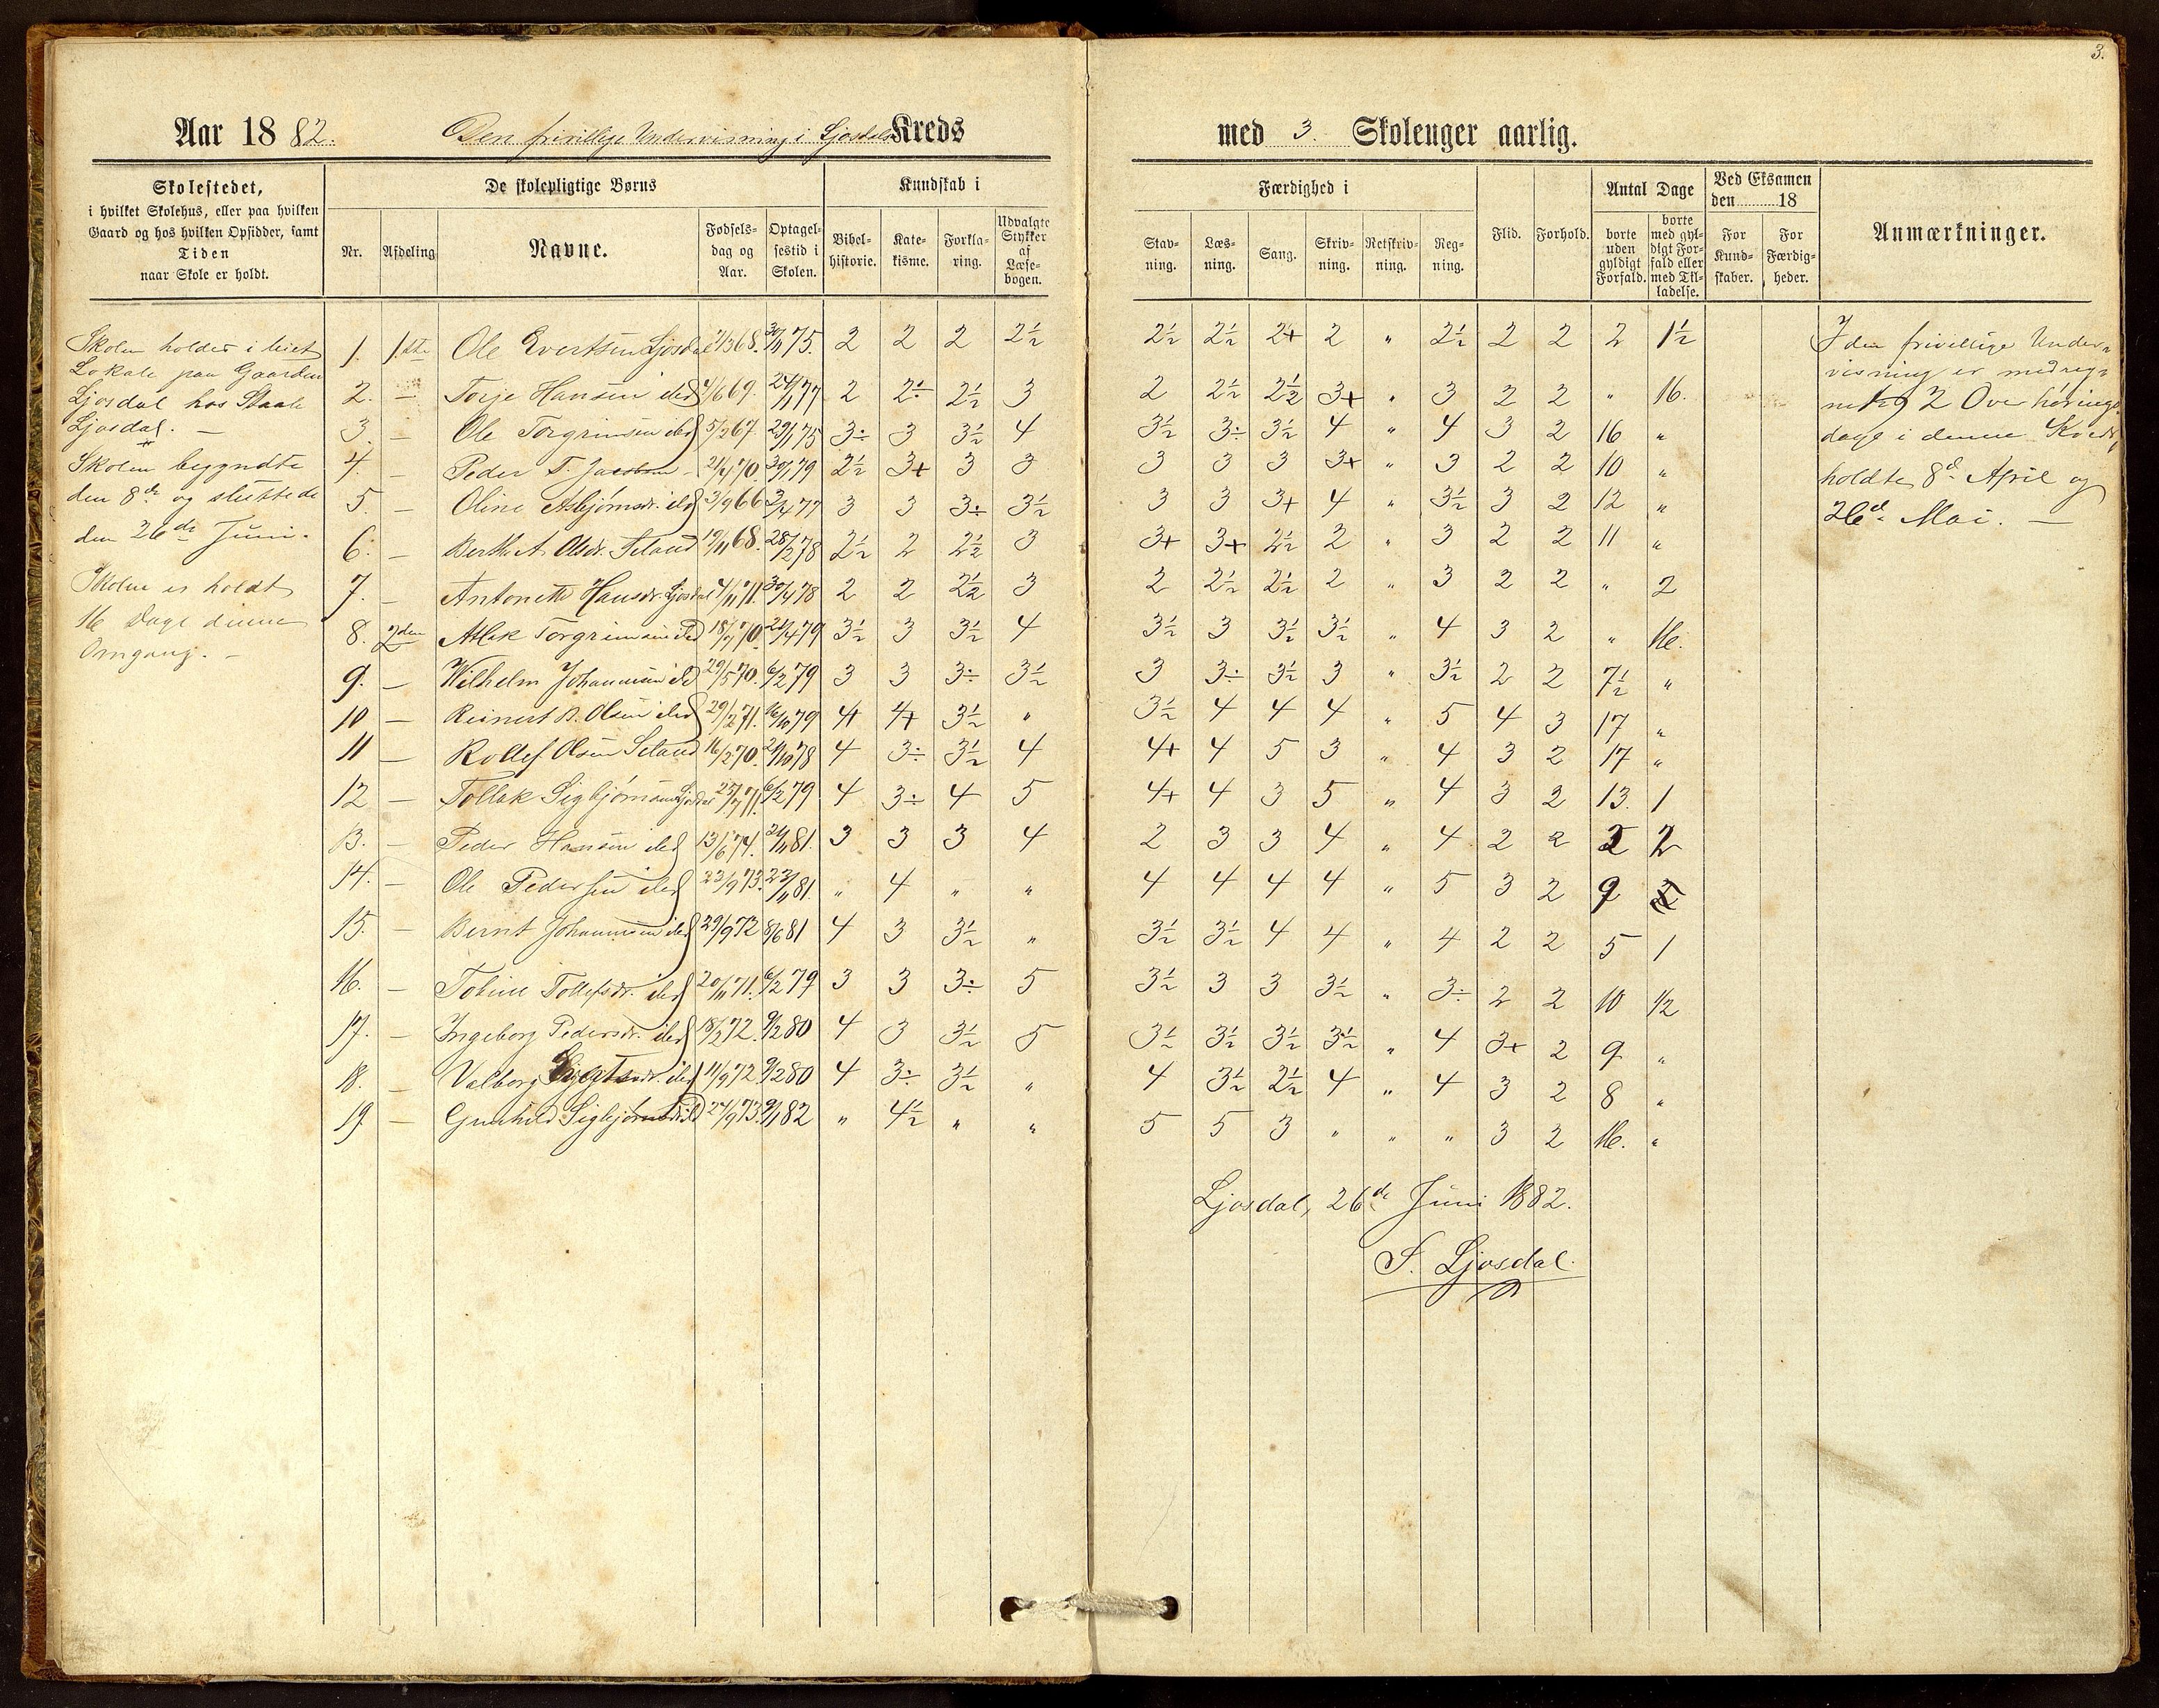 3.
Aar 1882. Den frivillige Undervisning i Ljosdals Kreds med 3. Skolenger aarlig.
Skolestedet,
i hvilket Skolehus, eller paa hvilken
Gaard og hos hvilken Opsidder, samt
Tiden
naar Skole er holdt.
De skolepligtige Børns
Nr. Afdeling Navne. Fødsels-dag og Aar. Optagel-sestid i Skolen.
Kundskab i
Bibel-historie. Kate-kisme. Forkla-ring. Udvalgte Stykker af Læse-bogen.
Færdighed i
Stav-ning. Læs-ning. Sang. Skriv-ning. Retskriv-ning. Reg-ning.
Flid. Forhold.
Antal Dage
borte uden gyldigt Forfald. borte med gyl-digt For-fald eller med Til-ladelse.
Ved Eksamen den 18
For Kund-skaber. For Færdig-heder.
Anmærkninger.
Skolen holdes i leiet
Lokale paa Gaarden
Ljosdal hos Staale
Ljosdal. —
Skolen begyndte
den 8de og sluttede
den 26de Juni.
Skolen er holdt
16 Dage denne
Omgang. —
1. 1ste Ole Evertsen Ljosdal 68. 30/11 75. 2 2 2 2½ 2½ 2½ 2+ 2 " 2½ 2 2 2 1½
2. — Torje Hansen ibd 4/6 69. 24/1 77 2 2÷ 2½ 3 2 2½ 2½ 3+ " 3 2 2 " 16.
3. — Ole Torgrimsen ibd 5/2 67. 29/1 75 3÷ 3 3½ 4 3½ 3÷ 3½ 4 " 4 3 2 16 "
4. — Peder T. Jacobsen — 21/4 70. 30/1 79 2½ 3+ 3 3 3 3 3 3+ " 3 2 2 10 "
5. — Oline Asbjørnsdr. ibd 3/9 66 3/4 77 3 3 3÷ 3½ 3 3 3+ 4 " 3½ 3 2 12 "
6. — Berthe A. Olsdr. Seland 19/11 68. 28/2 78 2½ 2 2½ 3 3+ 3+ 2½ 2 " 3 2 2 11 "
7. — Antonette Hansdr. Ljosdal 4/11 71. 30/4 78 2 2 2½ 3 2 2½ 2½ 2 " 3 2 2 " 2
8. 2den Atlak Torgrimsen ibd 18/7 70. 21/4 79 3½ 3 3½ 4 3½ 3 3½ 3½ " 4 3 2 " 16.
9. — Wilhelm Johannesen ibd 29/5 70. 6/2 79 3 3 3÷ 3½ 3 3÷ 3½ 3 " 3½ 2 2 7½ "
10 — Reinert B. Olsen ibd 29/2 71. 16/10 79 4+ 4+ 3½ " 3½ 4 4 4 " 5 4 3 17 "
11 — Rollef Olsen Seland 16/2 70. 21/10 78 4 3÷ 3½ 4 4+ 4 5 3 " 4 3 2 17 "
12 — Tollak Sigbjørnsen Ljosdal 25/7 71. 6/2 79. 4 3÷ 4 5 4+ 4 3 5 " 4 3 2 13. 1
13. — Peder Hansen ibd 13/6 74. 21/11 81. 3 3 3 4 2 3 3 4 " 4 2 2 2 2
14. — Ole Pedersen ibd 23/9 73. 23/11 81. " 4 " " 4 4 4 4 " 5 3 2 9
15. — Bernt Johannesen ibd 29/9 72 8/6 81 4 3 3½ " 3½ 3½ 4 4 " 4 2 2 5 1
16. — Tobine Tollefsdr. ibd 20/11 71. 6/2 79 3 3 3÷ 5 3½ 3 3 3½ " 3÷ 2 2 10 1/2
17. — Ingeborg Pedersdr. ibd 18/2 72. 9/2 80 4 3 3½ 5 3½ 3½ 3½ 3½ " 4 3+ 2 9 "
18. — Valborg ibd 11/9 72. 9/2 80 4 3÷ 3½ " 4 3½ 2½ 4 " 4 3 2 8 "
19 — Gunhild Sigbjørnsdr. ibd 24/9 73. 9/1 82 " 4½ " " 5 5 3 " " " 3 2 16. "
I den frivillige Under-
visning er medreg-
net 2 Overhørings-
dage i denne Kreds,
holdte 8de April og
26de Mai. —
Ljosdal, 26de Juni 1882.
S. Ljosdal.